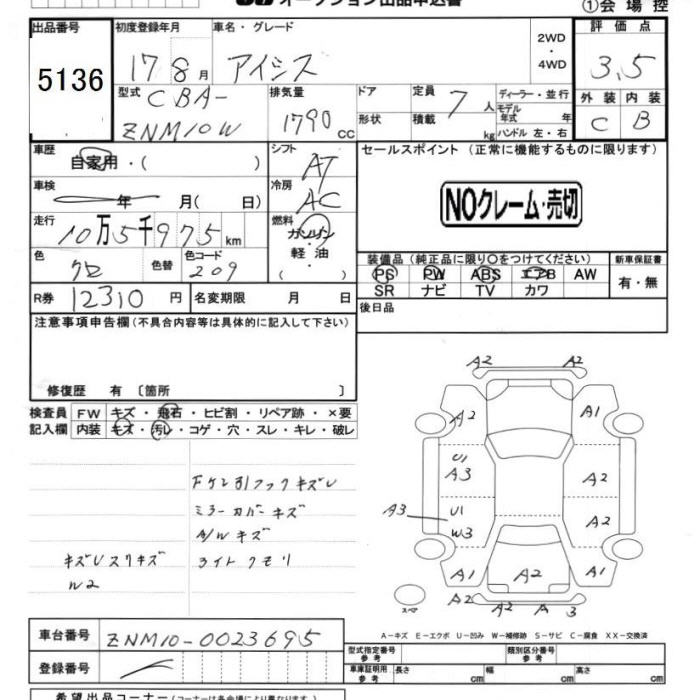 オークション出品申込書
①会場控
出品番号 初度登録年月 車名・グレード 2WD・4WD 評価点
5136 17 8月 アイシス 3.5
型式 排気量 ドア 定員 ディーラー・並行 外装 内装
CBA-
ZNM10W 1790CC 形状 積載 7人 kg モデル年式 年 ハンドル 左・右 C B
車歴 シフト セールスポイント (正常に機能するものに限ります)
自家用・( ) AT
車検 冷房
年 月( 日) AC NOクレーム・売切
走行 燃料
10万5千975km ガソリン・軽油 ( )
色 色替 色コード 装備品(純正品に限り〇をつけてください) 新車保証書
クロ 209 PS PW ABS エアB AW 有・無
SR ナビ TV カワ
R券 12310円 名変期限 月 日 後日品
注意事項申告欄(不具合内容等は具体的に記入して下さい)
修復歴 有 〔箇所 〕
検査員 FW キズ・飛石・ヒビ割・リペア跡・×要
記入欄 内装 キズ・汚レ・コゲ・穴・スレ・キレ・破レ
ミラーカバーキズ
A/Wキズ
キズUスリキズ ライトクモリ
W2
A2 A2
A2 A1
U1
A3 A2
A3 U1 A2
W3
A1 A2 A1
スペア A2 A2 A 3
A-キズ E-エクボ U-凹み W-補修跡 S-サビ C-腐食 XX-交換済
車台番号 ZNM10-0023695
型式指定番号 参考 類別区分番号 参考
登録番号
車庫証明用 参考 長さ cm 幅 cm 高さ cm
希望出品コーナー(コーナーは各会場により異なります)